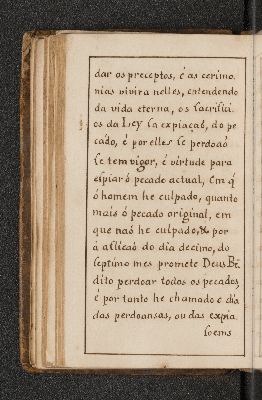 dar os preceptos, é as cerimo.
nias vivira nelles, entendendo
da vida eterna, os sacrifici
os da Ley sa expiaçaé, do pe
cádo, é por elles se perdoaõ
se tem vigor, é virtude para
espiar ó pecado actual, em q̃
ó homem he culpado, quanto
mais ó pecado original, em
que naó he culpado, & por
á aflicaõ do dia decimo, do
septimo mes promete Deus Bẽ.
dito perdoar todos os pecados,
é por tanto he chamado é dia
das perdoansas, ou das expia
soems